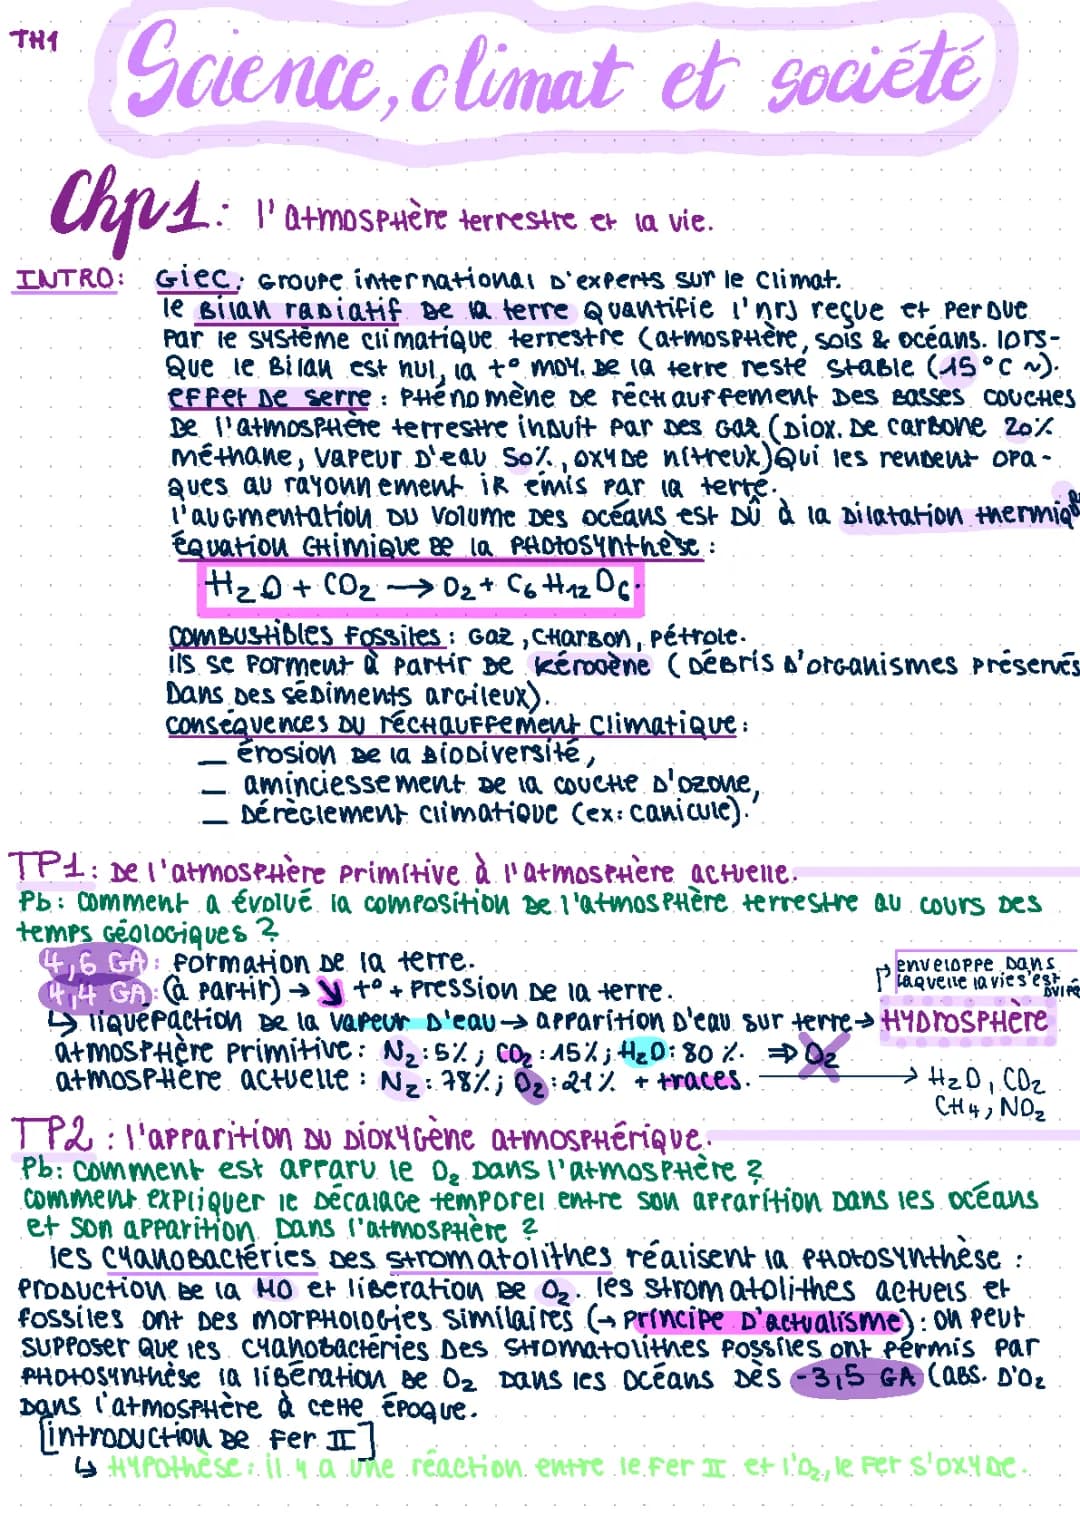 TH1
Science, climat et société
Chp1: l'atmosphère terrestre et la vie.
INTRO: Giec: Groupe international d'experts sur le climat.
le Bilan radiatif de la terre Quantifie l'nrj reçue et perdue
par le système climatique terrestre (atmosphère, sols & océans. lors-
que le Bilan est nul, la t° moy. de la terre reste stable (15°C ~).
effet de serre : Phénomène de réchauffement des basses couches
de l'atmosphère terrestre induit par des gaz (Diox. de carbone 20%
méthane, vapeur d'eau 50%, oxyde nitreux) Qui les rendent opa-
ques au rayonnement iR émis par la terre.
l'augmentation du volume des océans est dû à la dilatation thermique
Équation chimique de la Photosynthèse :
H2O + CO2 → O2 + C6H12O6.
combustibles fossiles : Gaz, charbon, pétrole.
ils se forment à partir de kérogène (débris d'organismes préservés
dans des sédiments argileux).
conséquences du réchauffement climatique :
— érosion de la Biodiversité,
— aminciessement de la couche d'ozone,
— dérèglement climatique (ex: canicule).
TP1: De l'atmosphère primitive à l'atmosphère actuelle.
Pb: Comment a évolué la composition de l'atmosphère terrestre au cours des
temps géologiques ?
4,6 GA: formation de la terre.
4,4 GA: (à partir) → ↘ t° + pression de la terre.
enveloppe dans
laquelle la vies'est
↳ liquéfaction de la vapeur d'eau → apparition d'eau sur terre → HYDrosphère
atmosphère primitive: N2: 5%; CO2: 15%; H2O: 80%. ⇒ O2
atmosphère actuelle : N2: 78%; O2: 21% + traces. → H2O, CO2
CH4, NO2
TP2 : l'apparition du dioxygène atmosphérique.
Pb: Comment est apparu le O2 dans l'atmosphère ?
comment expliquer le décalage temporel entre son apparition dans les océans
et son apparition dans l'atmosphère ?
les cyanobactéries des stromatolithes réalisent la photosynthèse :
production de la MO et libération de O2. les stromatolithes actuels et
fossiles ont des morphologies similaires (→ principe d'actualisme) : on peut
supposer que les cyanobactéries des stromatolithes fossiles ont permis par
photosynthèse la libération de O2 dans les océans dès -3,5 GA (abs. d'O2
dans l'atmosphère à cette époque.
[introduction de Fer II]
↳ Hypothèse: il y a une réaction entre le Fer II et l'O2, le Fer s'oxyde.